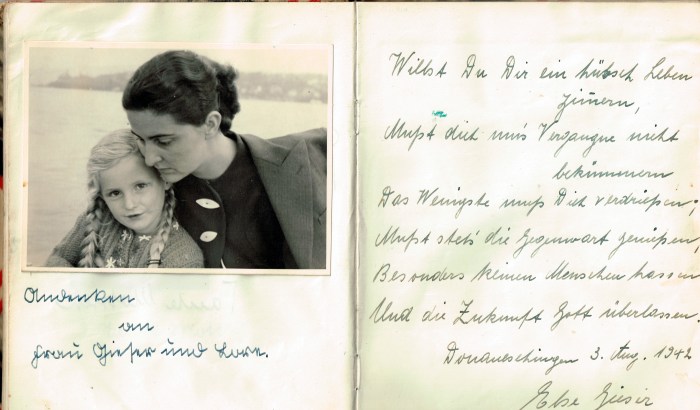 Andenken
an
Frau Gieser und Lore.
Willst Du Dir ein hübsch Leben
zimmern,
Mußt dich um's Vergangne nicht
bekümmern
Das Wenigste muß Dich verdrießen;
Mußt stets die Gegenwart genießen,
Besonders keinen Menschen hassen
Und die Zukunft Gott überlassen.
Donaueschingen 3. Aug. 1942
Else Gieser